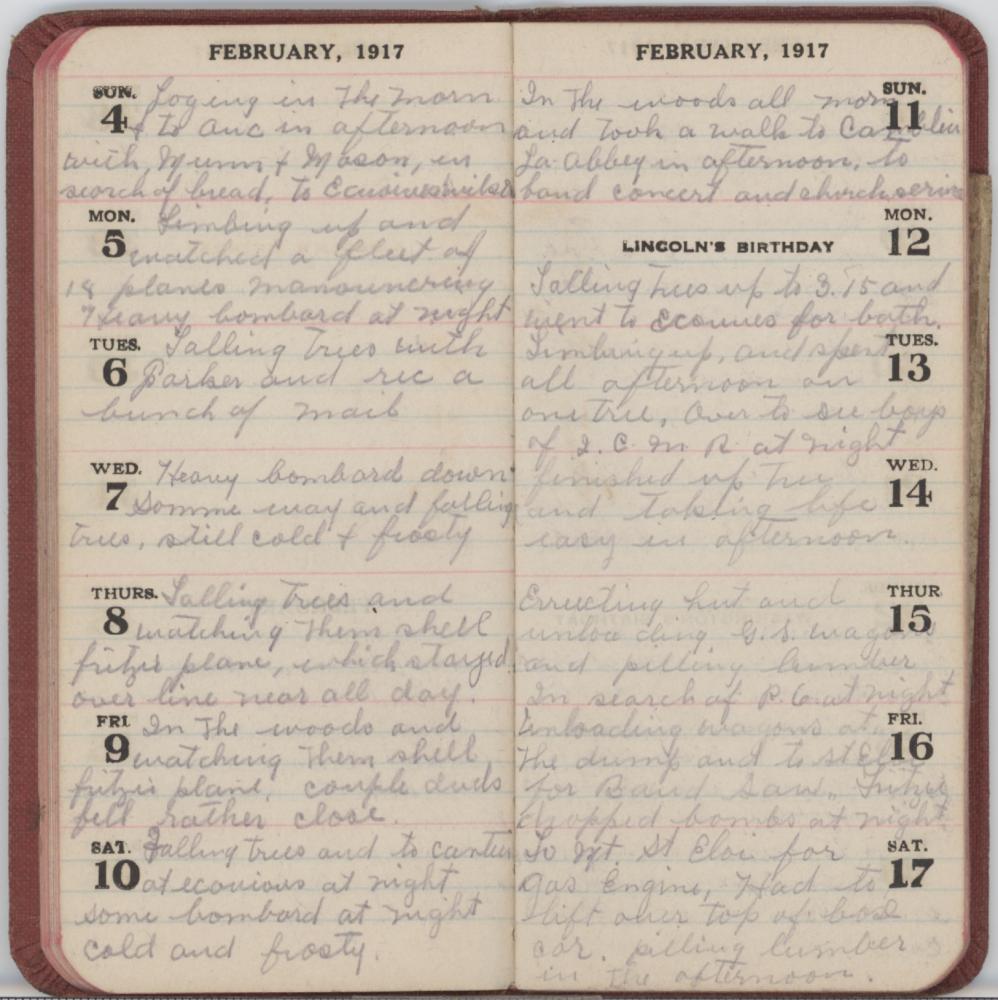 FEBRUARY, 1917
SUN.
4
Loging in The morn
& to Auc in afternoon
with, Nunn & Mason, in
search of bread, to Ecuives
MON.
5
Limbing up and
watched a fleet of
18 planes manouvering
Heavy bombard at night
TUES.
6
Falling trees with
Parker and rec a
bunch of mail
WED.
7
Heavy bombard down
Somme way and falling
trees, still cold & frosty
THURS.
8
Falling Trees and
watching Them shell
fritzis plane, which stayed
over line near all day.
FRI.
9
In The woods and
watching Them shell
fritzis plane, couple duds
fell rather close.
SAT.
10
Falling trees and to canteen
at ecovious at night
some bombard at night
cold and frosty.
FEBRUARY, 1917
SUN.
11
In The woods all morn
and Took a walk to Camblin
La Abbey in afternoon. to
band concert and church serive
MON.
12
LINCOLN'S BIRTHDAY
Falling trees up to 3.15 and
went to Ecovies for bath.
TUES.
13
Limbing up, and spent
all afternoon on
one tree, Over to see boys
of I. C. M R at night
WED.
14
finished up Tree
and taking life
easy in afternoon.
THUR
15
Errecting hut and
unloading G. S. wagons
and pilling lumber
In search of P. C. at night
FRI.
16
Unloading wagons at
The dump and to st Eloi
for Band Saw. Fritzie
dropped bombs at night.
SAT.
17
To Mt. St Eloi for
Gas Engine, Had to
lift over top of box
car. pilling lumber
in The afternoon.